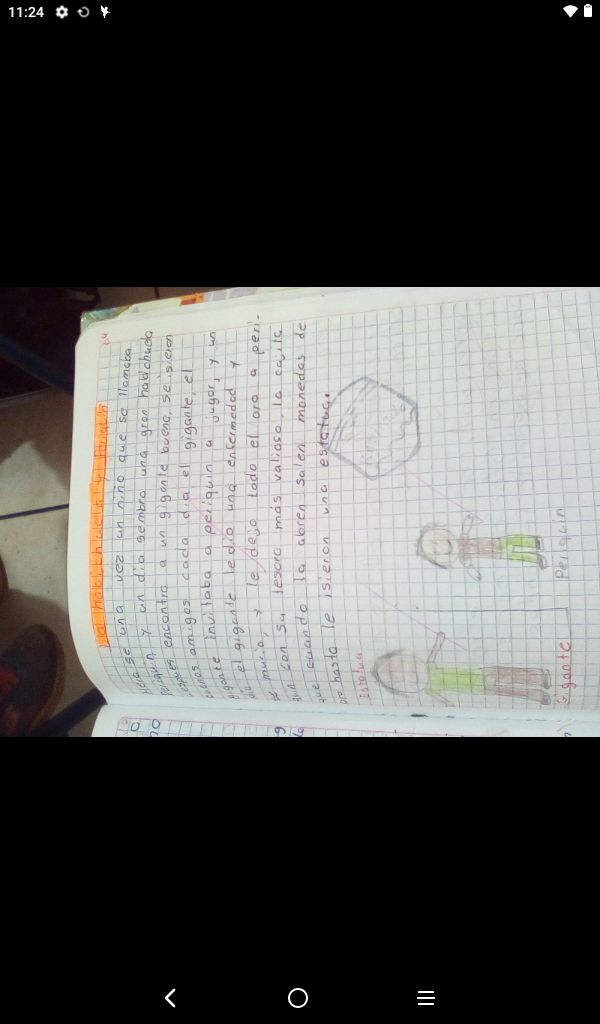 11:24
La habichuela y Periquin
64
Hera se una vez un niño que se llamaba
Periquin y un dia sembro una gran habichuela
después encontro a un gigante bueno, se isieron
buenos amigos cada dia el gigante, el
gigante invitaba a periquin a jugar, y un
dia el gigante le dio una enfermedad y
se murio, y le dejo todo el oro a peri-
quin con su tesoro más valioso, la cajita
que cuando la abren salen monedas de
oro, hasta le isieron una estatua.
Estatua
Periquin
Gigante